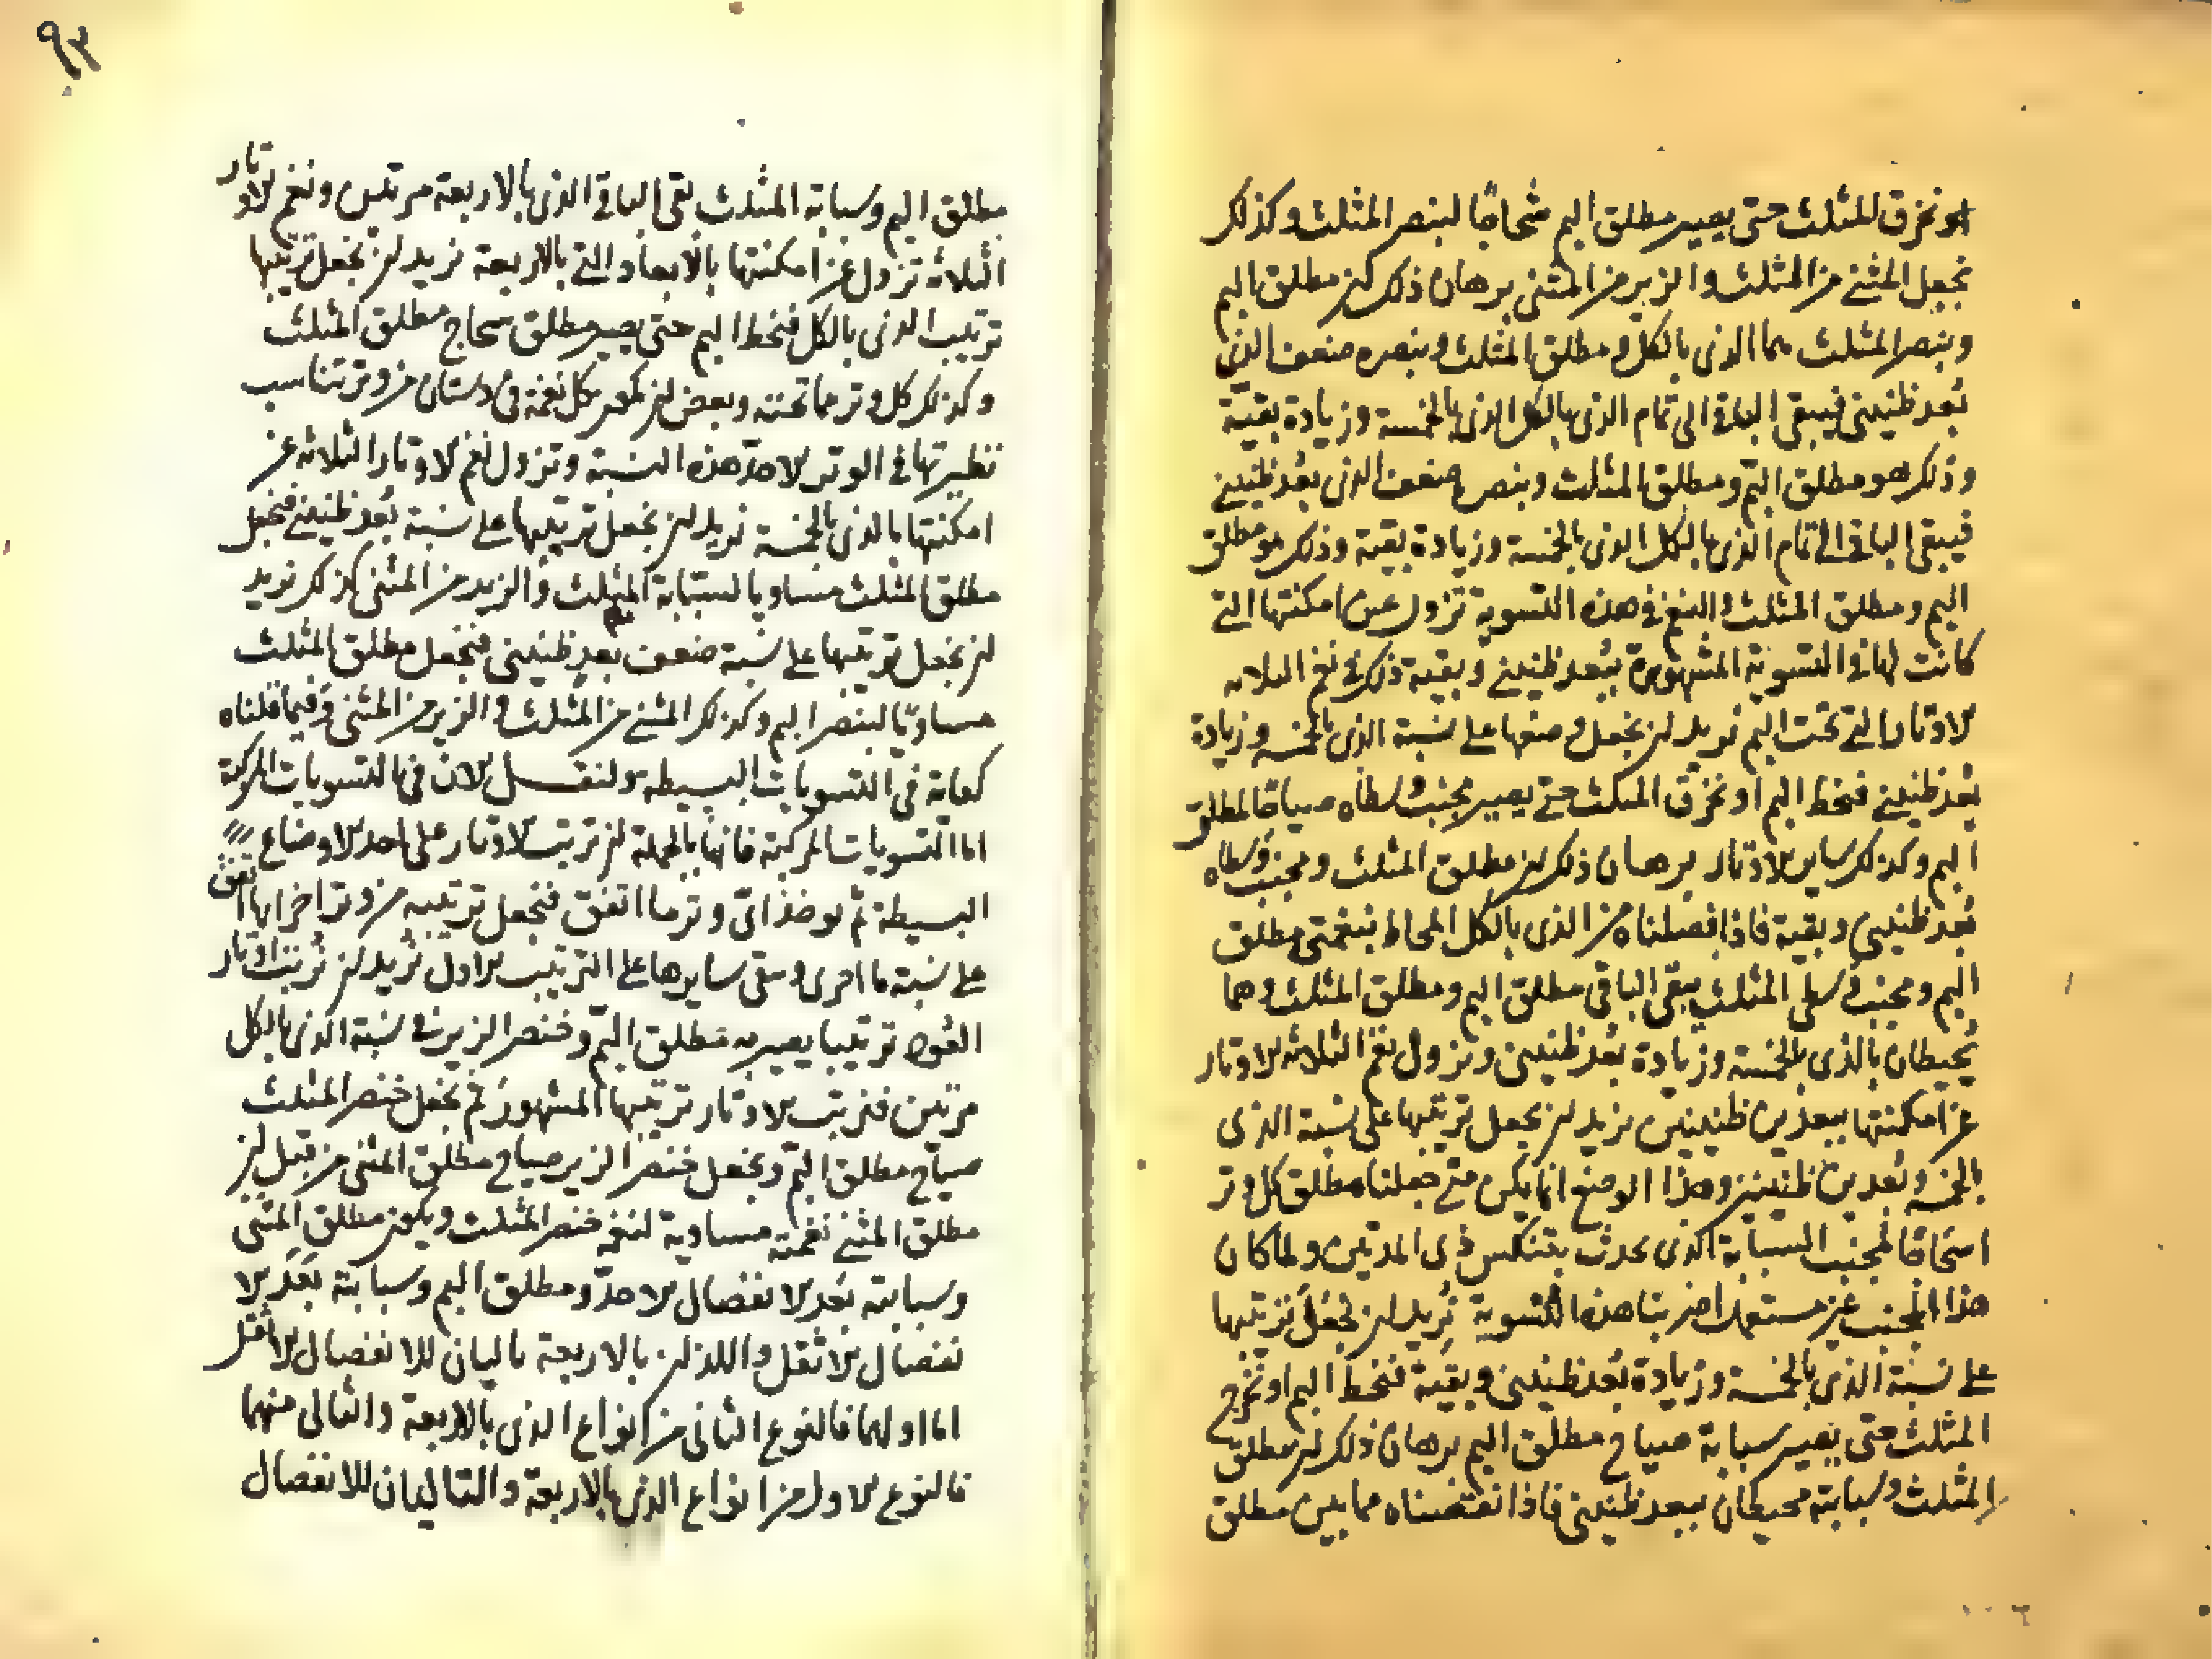 او نخرق المثلث حتى يصير مطلق البم شحاجا لبنصر المثلث وكذلك
نجعل المثنى من المثلث والزير من المثنى برهان ذلك ان مطلق البم
وبنصر المثلث هما الذي بالكل ومطلق المثلث وبنصره ضعف الذي
بعد طنينى فيبقى الباقى الى تمام الذي بالكل الذي بالخمسة وزيادة بقية
وذلك هو مطلق البم ومطلق المثلث وبنصره ضعف الذي بعد طنينى
فيبقى الباقى الى تمام الذي بالكل الذي بالخمسة وزيادة بقية وذلك هو مطلق
البم ومطلق المثلث والنغم في هذه التسوية تزول عن امكنتها التى
كانت لها في التسوية المشهورة ببعد طنينى وبقية ذلك في نغم الثلاثة
الاوتار التى تحت البم نريد ان نجعل وضعها على نسبة الذي بالخمسة وزيادة
بعد طنينى فنحط البم او نخرق المثلث حتى يصير مجنب وسطاه صياحا لمطلق
البم وكذلك ساير الاوتار برهان ذلك ان مطلق المثلث ومجنب وسطاه
بعد طنينى وبقية فاذا فصلناه من الذي بالكل المحاط بنغمتى مطلق
البم ومجنب وسطى المثلث يبقى الباقى مطلق البم ومطلق المثلث وهما
يحيطان بالذي بالخمسة وزيادة بعد طنينى وتزول نغم الثلاثة الاوتار
عن امكنتها ببعدين طنينيين نريد ان نجعل ترتيبها على نسبة الذي
بالخمسة وبعدين طنينيين وهذا الوضع انما يكون متى جعلنا مطلق كل وتر
اسحاحا لمجنب السبابة الذي يحدث بتنكيس ذى المدتين ولما كان
هذا المجنب غير مستعمل اضربنا هذه التسوية نريد ان نجعل ترتيبها
على نسبة الذي بالخمسة وزيادة بعد طنينى وبقية فنحط البم او نخرق
المثلث حتى يصير سبابة صياح مطلق البم برهان ذلك ان مطلق
المثلث وسبابته محيطان ببعد طنينى فاذا انقصناه مما بين مطلق
٩٣
مطلق البم وسبابة المثلث بقى الباقى الذي بالاربعة مرتين ونغم الاوتار
الثلاثة تزول عن امكنتها بالابعاد التى بالاربعة نريد ان نجعل ترتيبها
ترتيب الذي بالكل فنحط البم حتى يصير مطلق سحاج مطلق المثلث
وكذلك كل وتر مما تحته وبعض ان كل نغمة في دستان من وتر تناسب
نظيرتها في الوتر الاخر هذه النسبة وتزول نغم الاوتار الثلاثة عن
امكنتها بالذي بالخمسة نريد ان نجعل ترتيبها على نسبة بعد طنينى فنجعل
مطلق المثلث مساويا لسبابة البم والمثنى من المثلث والزير من المثنى كذلك نريد
ان نجعل ترتيبها على نسبة ضعف بعد طنينى فنجعل مطلق المثلث
مساويا لبنصر البم وكذلك المثنى من المثلث والزير من المثنى وفيما قلناه
كفاية في التسويات البسيطة ولنقل الان في التسويات المركبة
اما التسويات المركبة فانها بالجملة ان ترتب الاوتار على احد الاوضاع
البسيطة ثم يوخذ اى وتر ما اتفق فنجعل ترتيبه من وتر اخر ايها اتفق
على نسبة ما اخرى وبقى سايرها على الترتيب الاول نريد ان نرتب اوتار
العود ترتيبا يصير به مطلق البم وخنصر الزير في نسبة الذي بالكل
مرتين فنرتب الاوتار ترتيبها المشهور ثم نجعل خنصر المثلث
صياح مطلق البم ونجعل خنصر الزير صياح مطلق المثنى من قبل ان
مطلق المثنى نغمته مساوية لنغمة خنصر المثلث ويكون مطلق المثنى
وسبابته بعد الانفصال الاحد ومطلق البم وسبابته بعد الا
نفصال الاثقل واللذان بالاربعة تاليان للانفصال الاثقل
اما اولهما فالنوع الثانى من انواع الذي بالاربعة والثانى منهما
فالنوع الاول من انواع الذي بالاربعة والتاليان للانفصال